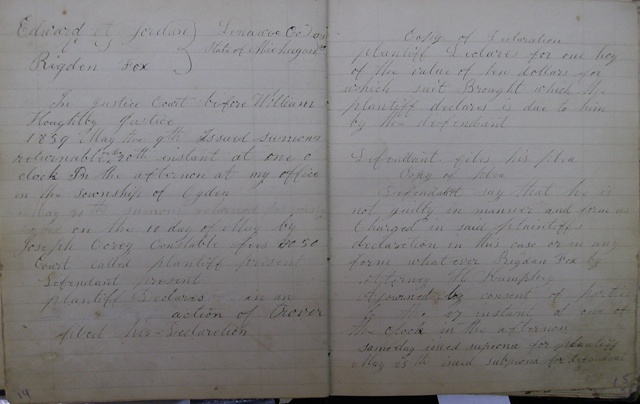 Edward A Jordan } Lenawee Co
vs } State of Michigan
Rigden Fox
In Justice Court before William
Houghlby Justice
1859 May the 9th Issued sumons
returnable the 20th instant at one o
clock In the afternoon at my office
in the township of Ogden
May sumons returned
on the 10 day of May by
Joseph Corey Constable fees $0.50
Court called plaintiff present
Defendant present
plaintiff Declares in an
action of Trover
filed his Declaration
14
Copy of Declaration
plaintiff Declares for one hog
of the value of ten dollars for
which suit Brought which the
plantiff declares is due to him
by the defendant
Defendant files his plea
Copy of plea
Defendant say that he is
not guilty in manner and form as
Charged in said plaintiffs
declaration in this case or in any
form what ever Rigdan Fox by
Attorney Humphry
Ajourned by consent of parties
the 27 instant at one of
the clock in the afternoon
same day isued supeona for plantiff
May 25th isued subpeona for defendant
15